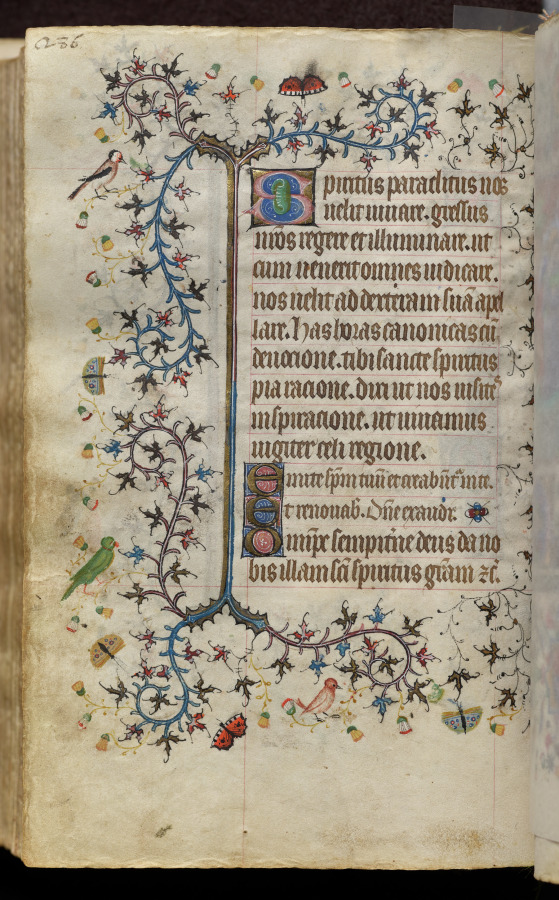 286.
Spiritus paraclitus nos
uelit iuuare. gressus
n̄ros regere et illuminare. ut
cum uenerit omnes iudicare.
nos uelit ad dexteram suā apel
lare. Has horas canonicas cū
deuocione. tibi sancte spiritus
pia racione. dixi ut nos uisites
inspiracione. ut uiuamus
iugiter celi regione.
Emitte sp̄m tuū et creabūt᷑ inte.
Et renouab̄. Dn̄e exaudi.
Omp̄x sempit̄ne deus da no
bis illam sc̄i spiritus gr̄am ⁊c̄.